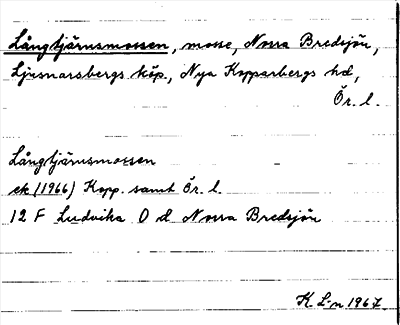 Långtjärnsmossen, mosse, Norra Bredsjön,
Ljusnarsbergs köp., Nya Kopparbergs hd,
Ör. l.
Långtjärnsmossen
ek (1966) Kopp. samt Ör. l.
12 F Ludvika O d Norra Bredsjön
K. L-n 1967